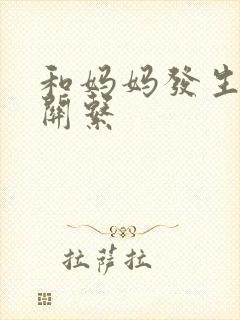 和妈妈發生
關繫
拉薩拉